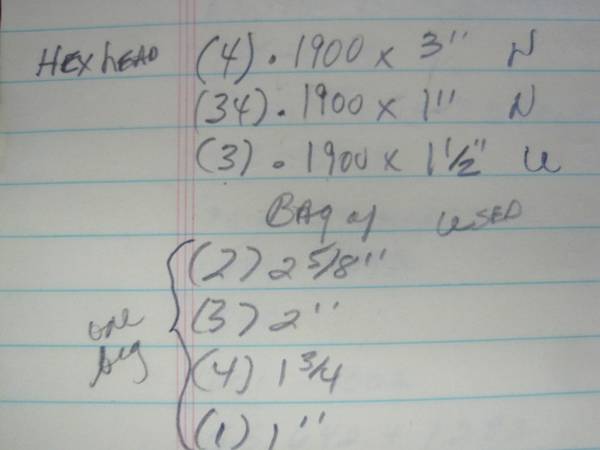 HEX hEAD (4) . 1900 x 3" N
(34) . 1900 x 1" N
(3) . 1900 x 1 1/2" U
BAg of USED
(2) 2 5/8"
(3) 2"
one bag
(4) 1 3/4
(1) 1"